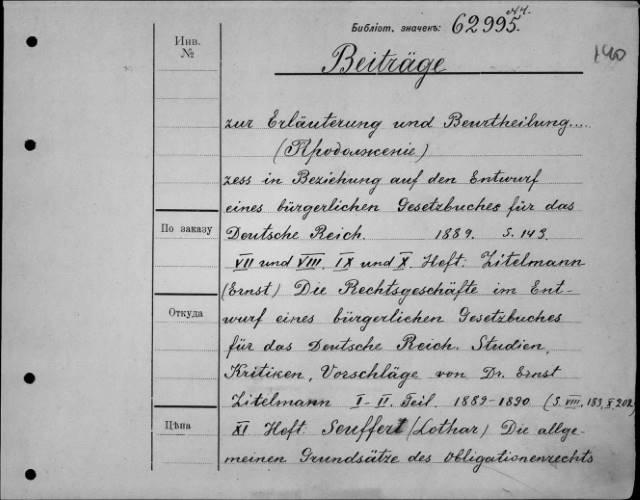 Библіот. значекъ: 62995. N4.
140
Инв.
№
Beiträge
zur Erläuterung und Beurtheilung....
(Продолженіе)
zess in Beziehung auf den Entwurf
eines bürgerlichen Gesetzbuches für das
По заказу
Deutsche Reich. 1889. S. 143.
VII und VIII. IX und X. Heft. Zitelmann
(Ernst) Die Rechtsgeschäfte im Ent-
Откуда
wurf eines bürgerlichen Gesetzbuches
für das Deutsche Reich. Studien,
Kritiken, Vorschläge von Dr. Ernst
Zitelmann I-II. Teil. 1889-1890 (S. VIII, 183, X, 202
Цѣна
XI Heft. Seuffert (Lothar) Die allge-
meinen Grundsätze des Obligationenrechts